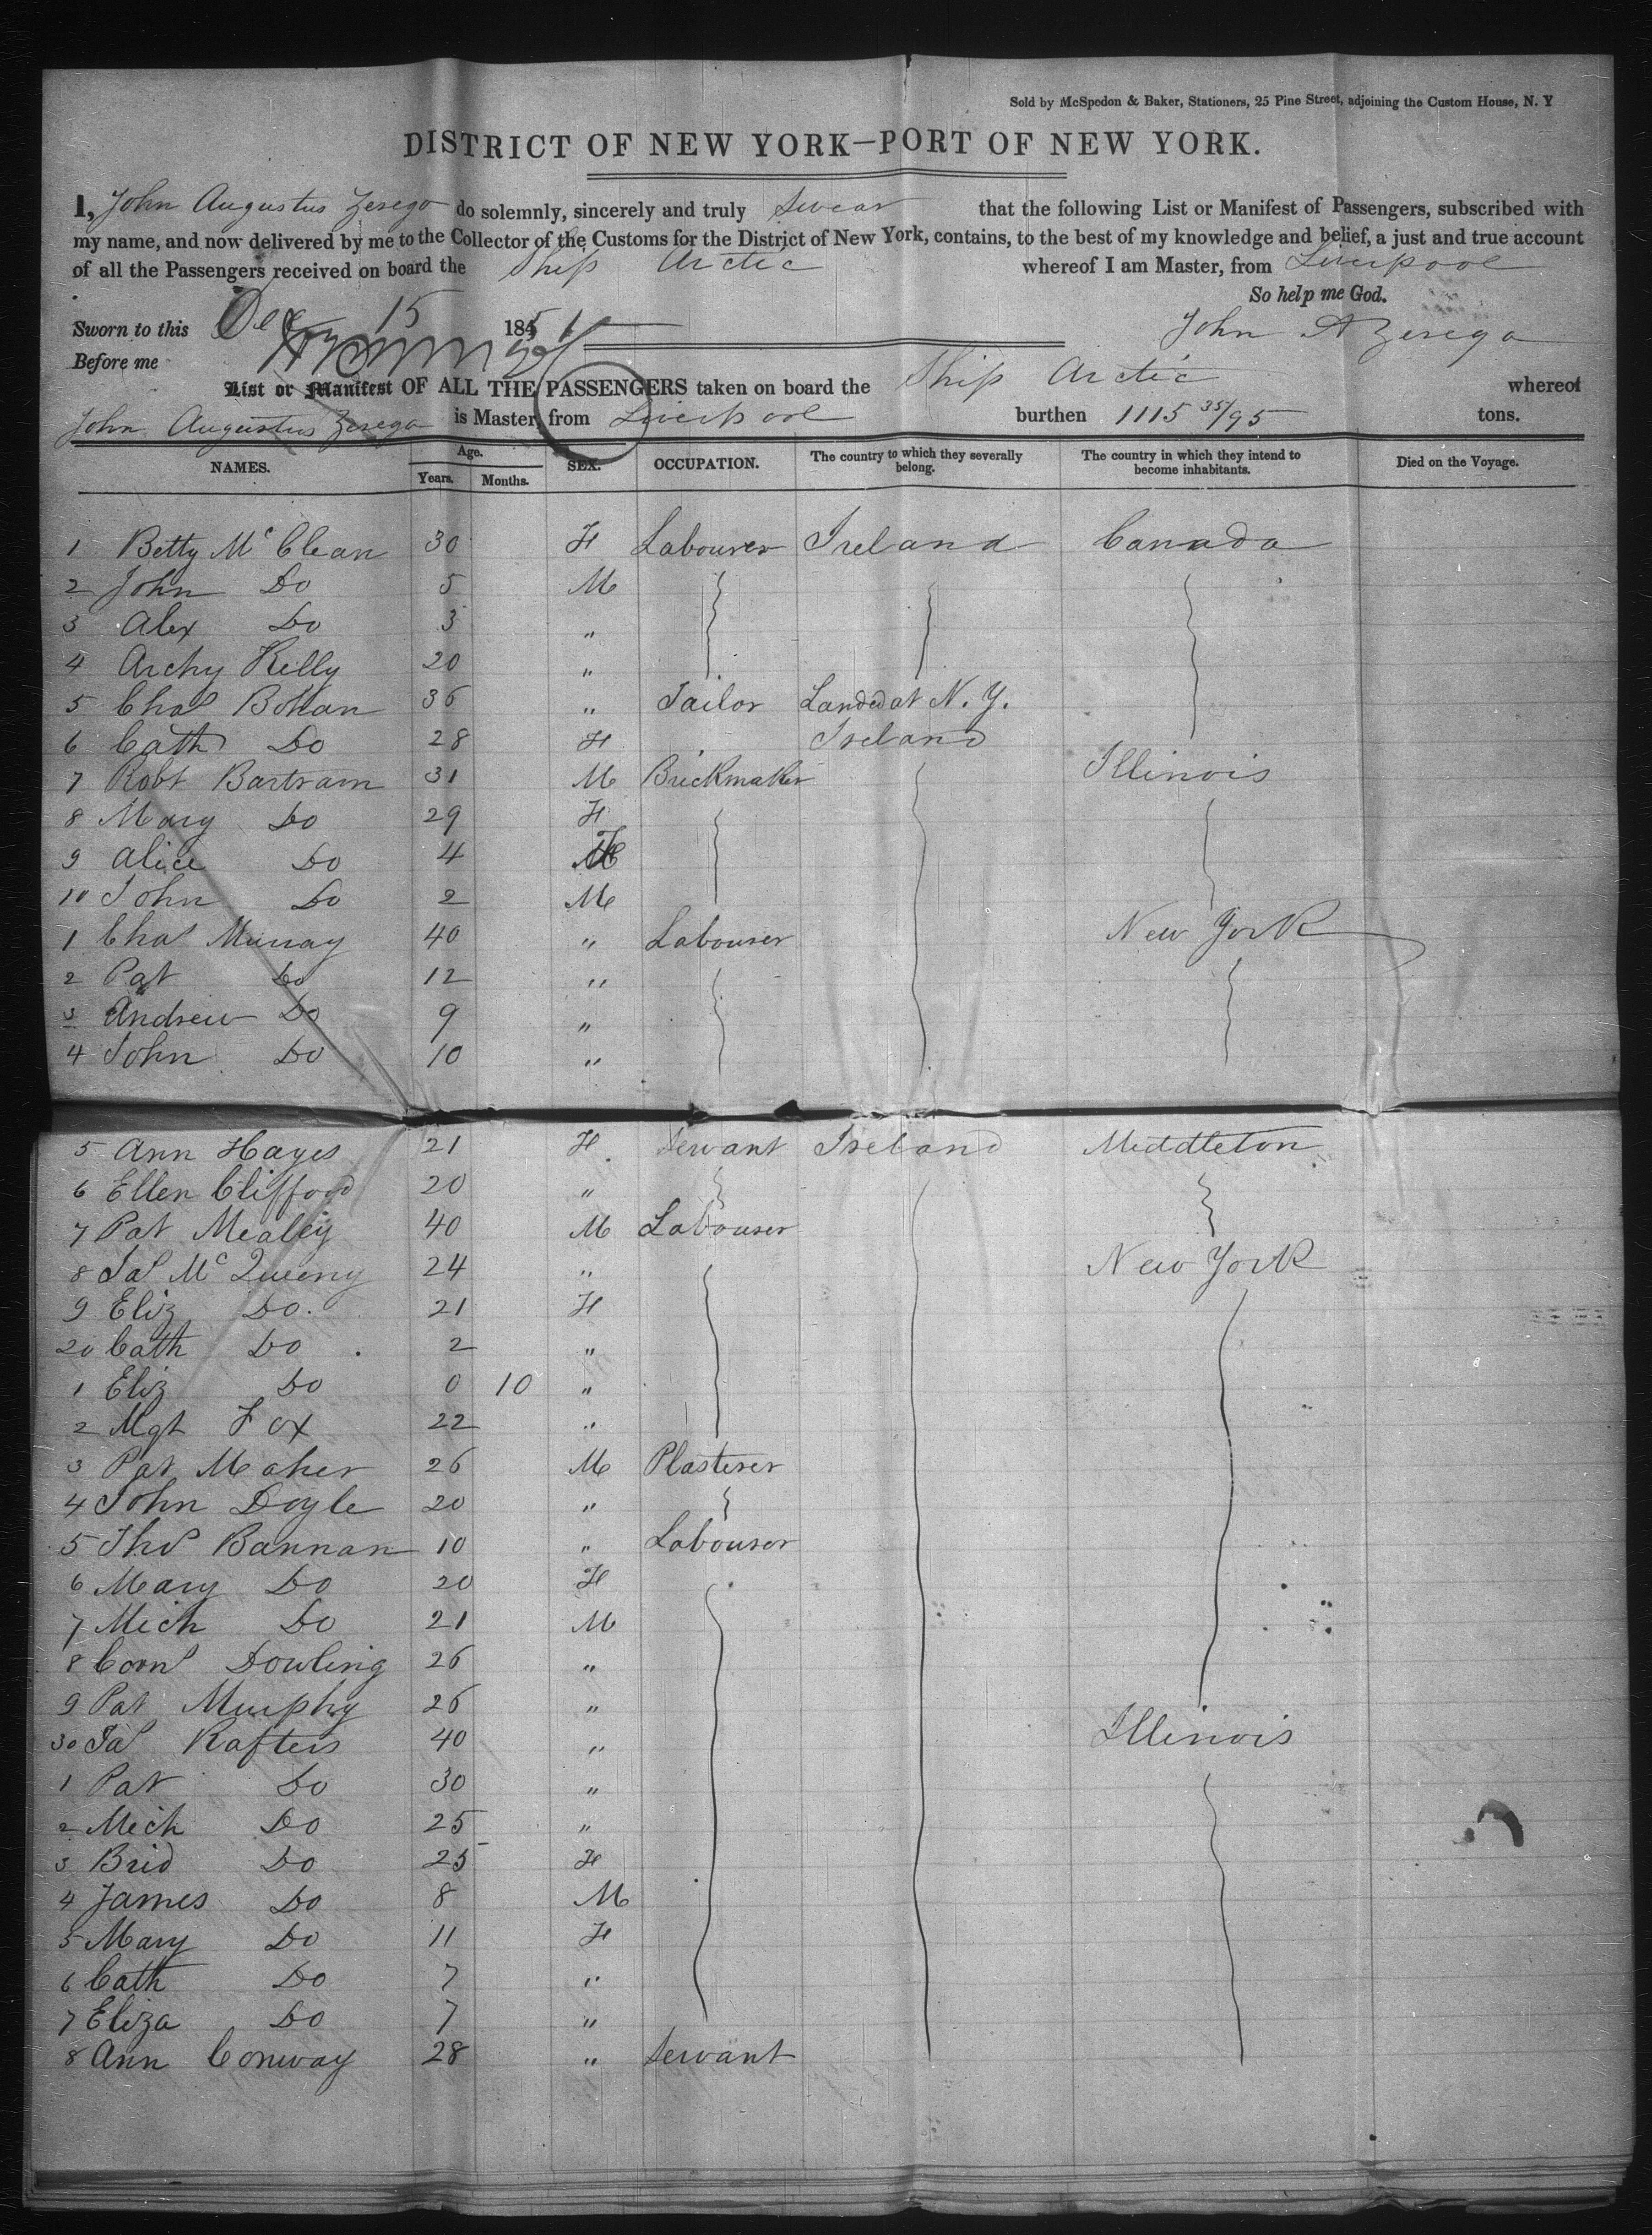 Sold by McSpedon & Baker, Stationers, 25 Pine Street, adjoining the Custom House, N. Y
DISTRICT OF NEW YORK—PORT OF NEW YORK.
I, John Augustus Zerega do solemnly, sincerely and truly Swear that the following List or Manifest of Passengers, subscribed with
my name, and now delivered by me to the Collector of the Customs for the District of New York, contains, to the best of my knowledge and belief, a just and true account
of all the Passengers received on board the Ship Arctic whereof I am Master, from Liverpool
So help me God.
Sworn to this Dec 15 1851 John A Zerega
Before me
List or Manifest OF ALL THE PASSENGERS taken on board the Ship Arctic whereof
John Augustus Zerega is Master, from Liverpool burthen 1115 35/95 tons.
NAMES. Age. Years. Months. SEX. OCCUPATION. The country to which they severally belong. The country in which they intend to become inhabitants. Died on the Voyage.
1 Betty McClean 30 F Labourer Ireland Canada
2 John Do 5 M
3 Alex Do 3 "
4 Archy Kelly 20 "
5 Chas Bohan 36 " Tailor Landed at N. Y.
6 Cath Do 28 F Ireland
7 Robt Bartram 31 M Brickmaker Illinois
8 Mary Do 29 F
9 Alice Do 4 F
10 John Do 2 M
1 Chas Murray 40 " Labourer New York
2 Pat Do 12 "
3 Andrew Do 9 "
4 John Do 10 "
5 Ann Hayes 21 F Servant Ireland Middleton
6 Ellen Clifford 20 "
7 Pat Mealey 40 M Labourer
8 Jas McQueeny 24 " New York
9 Eliz Do. 21 F
20 Cath Do 2 "
1 Eliz Do 0 10 "
2 Mgt Fox 22 "
3 Pat Maher 26 M Plasterer
4 John Doyle 20 "
5 Thos Bannan 10 " Labourer
6 Mary Do 20 F
7 Mich Do 21 M
8 Corns Dowling 26 "
9 Pat Murphy 26 "
30 Jas Rafters 40 " Illinois
1 Pat Do 30 "
2 Mich Do 25 "
3 Brid Do 25 F
4 James Do 8 M
5 Mary Do 11 F
6 Cath Do 7 "
7 Eliza Do 7 "
8 Ann Conway 28 " Servant